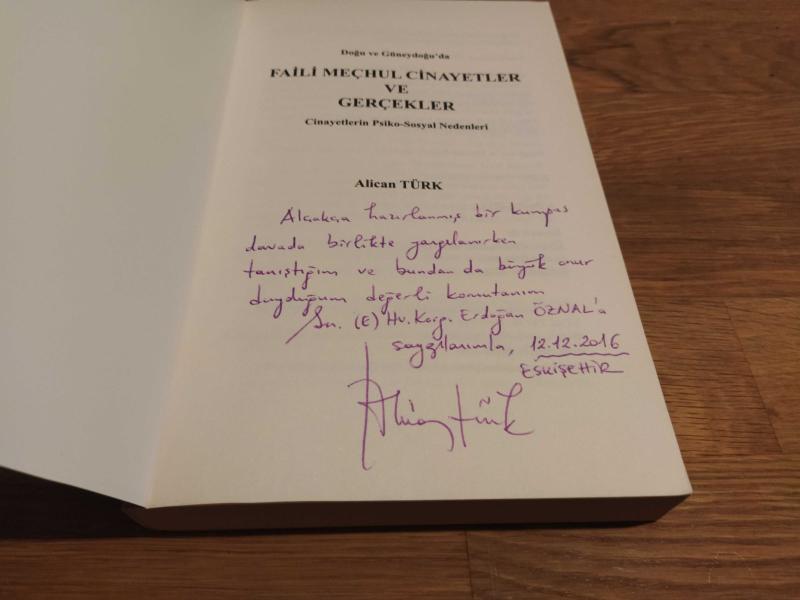 Doğu ve Güneydoğu'da
FAİLİ MEÇHUL CİNAYETLER
VE
GERÇEKLER
Cinayetlerin Psiko-Sosyal Nedenleri
Alican TÜRK
Alçakça hazırlanmış bir kumpas
davada birlikte yargılanırken
tanıştığım ve bundan da büyük onur
duyduğum değerli komutanım
Sn. (E) Hv. Korg. Erdoğan ÖZNAL'a
saygılarımla, 12.12.2016
ESKİŞEHİR
Alican Türk